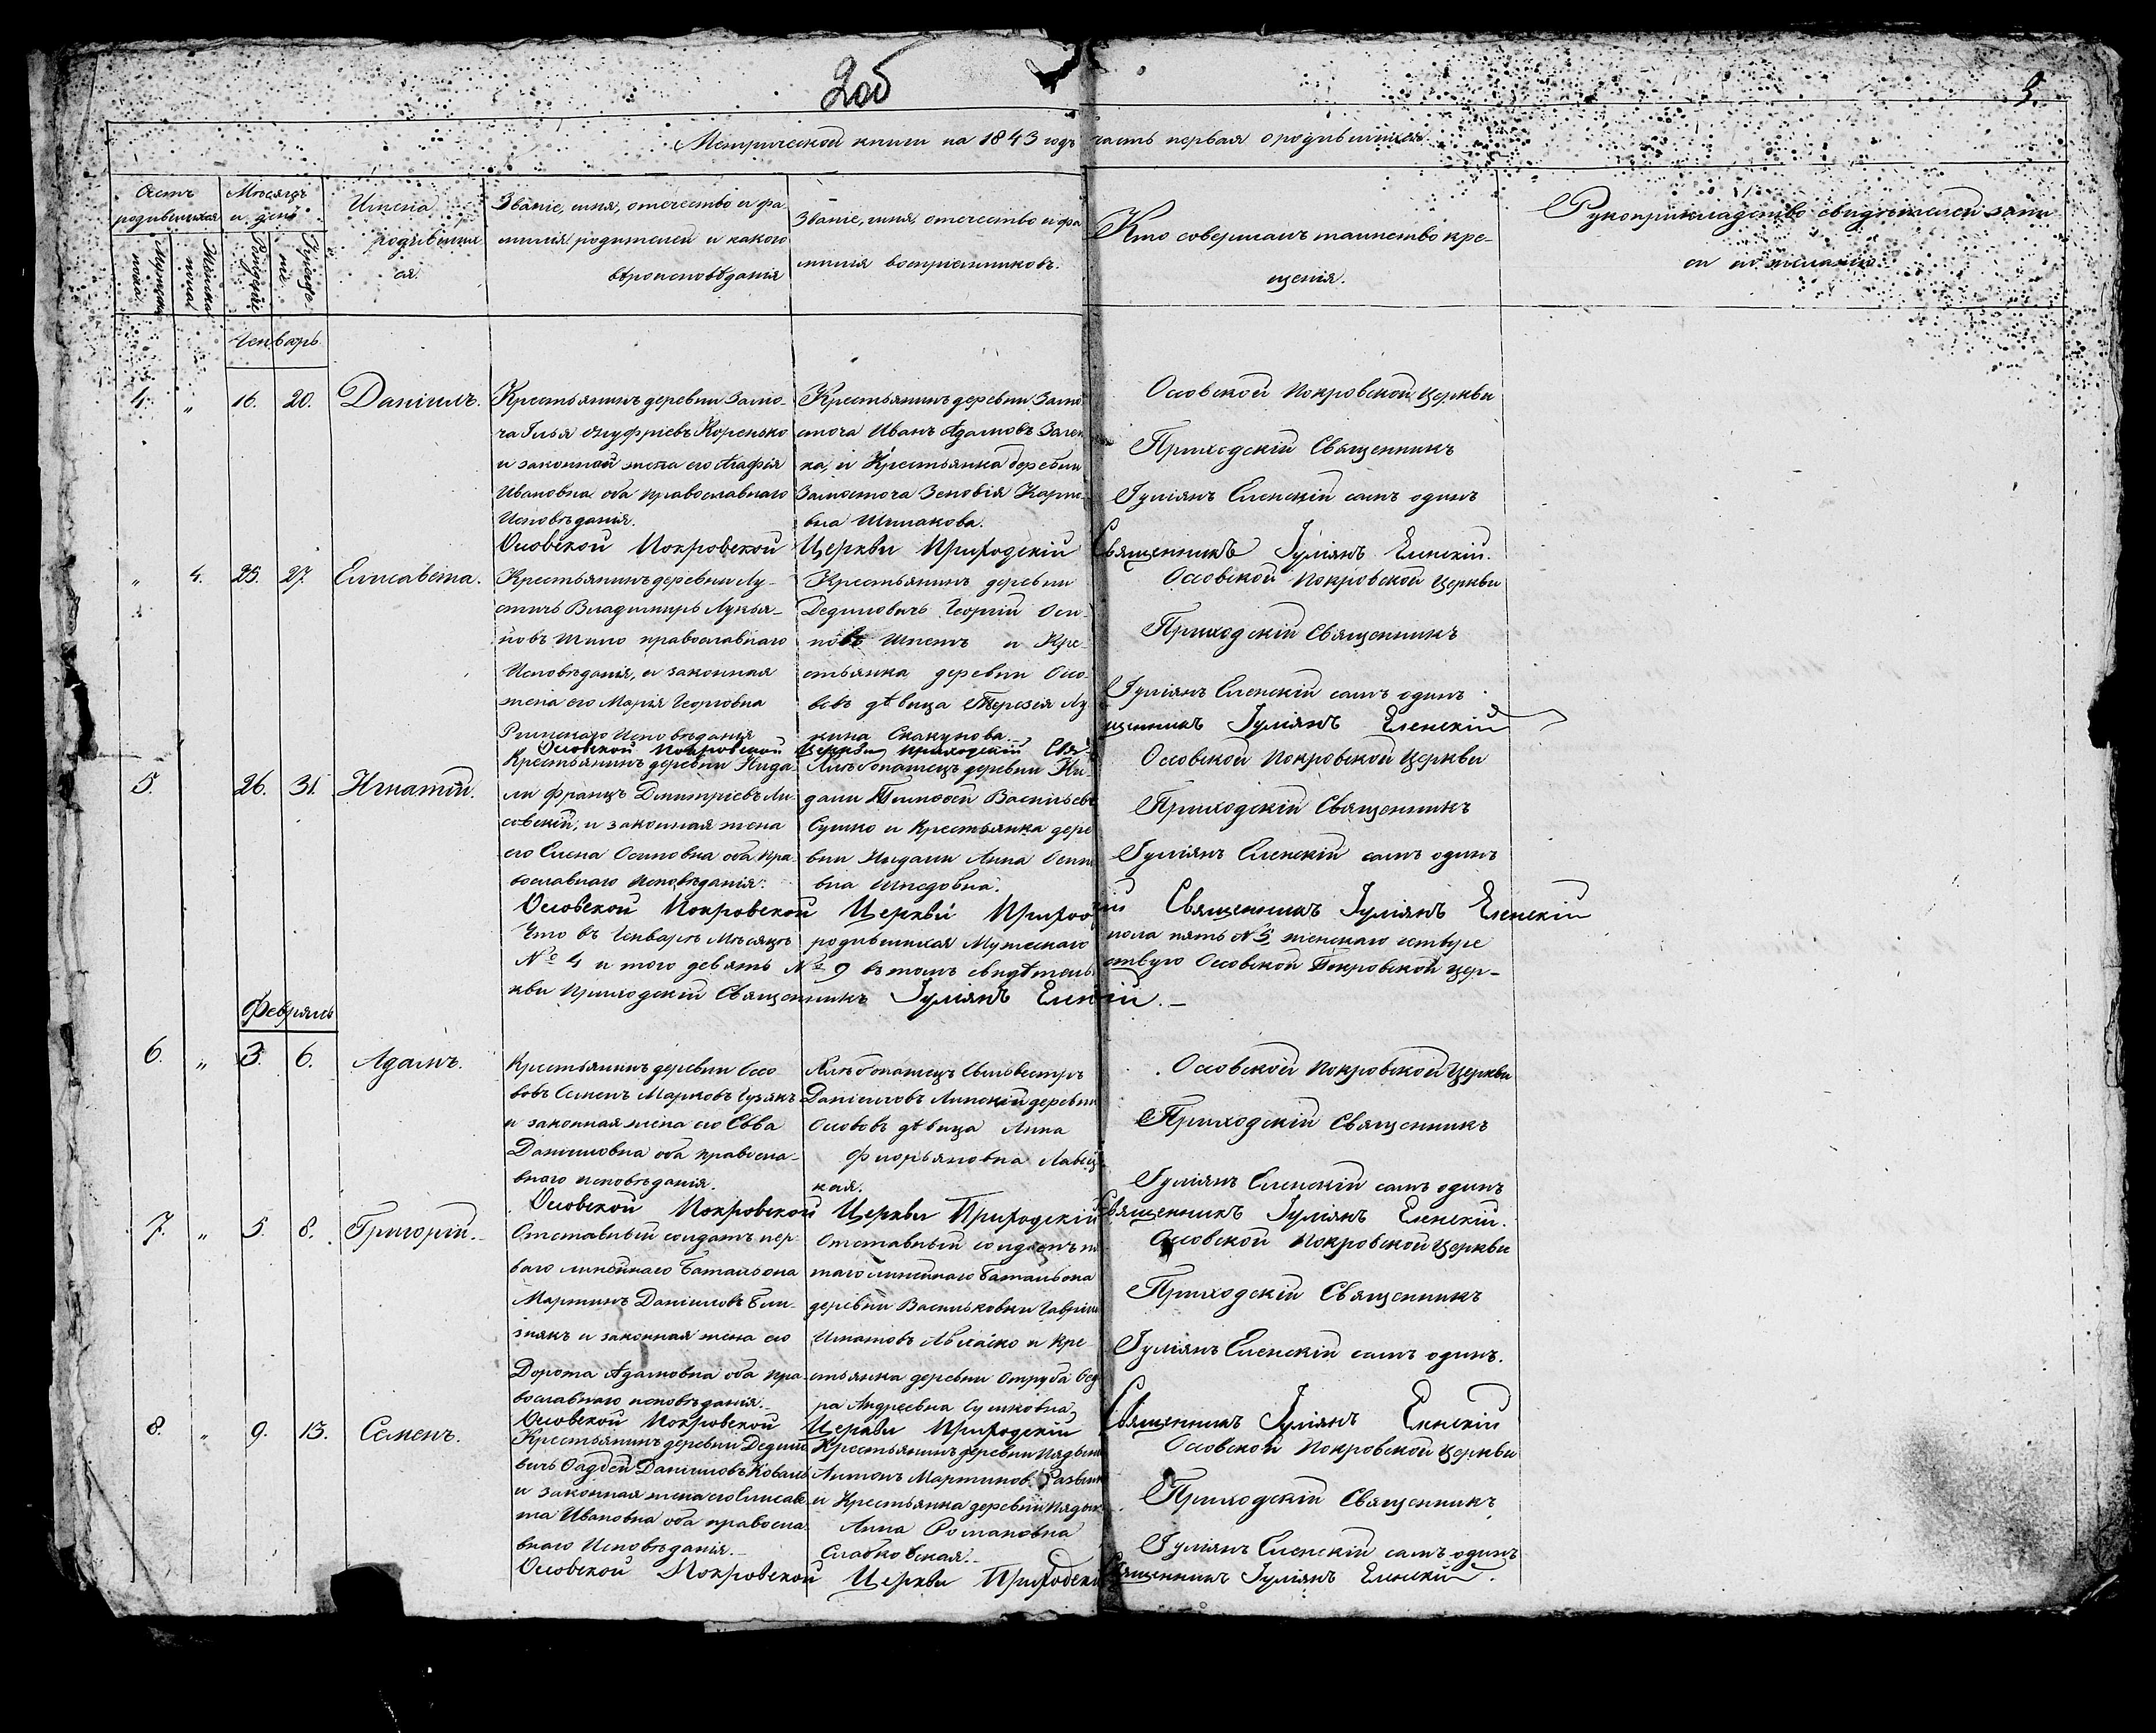 2об
3.
Метрической книги на 1843 годъ часть первая о родившихся.
Счетъ родившихся
Мѣсяцъ и день
Имена родившихся.
Званіе, имя, отечество и фамилія родителей и какого вѣроисповѣданія
Званіе, имя, отечество и фамилія воспріемниковъ.
Кто совершалъ таинство крещенія.
Рукоприкладство свидѣтелей записи по желанію.
Мужеска пола
Женска пола
Рожденія
Крещенія
Генварь
4. „ 16. 20. Даніилъ.
Крестьянинъ деревни Замо-
ча Илья Онуфріевъ Коренько
и законной жена его Агафія
Ивановна оба православнаго
Исповѣданія.
Крестьянинъ деревни Замо
сточа Иванъ Адамовъ
ка, и Крестьянка деревни
Замосточа Зеновія Карпо-
вна Шпакова.
Оссовской Покровской Церкви
Приходскій Священникъ
Іуліянъ Еленскій самъ одинъ
Осовской Покровской Церкви Приходскій Священникъ Іуліянъ Еленскій.
„ 4. 25. 27. Елисавета.
Крестьянинъ деревни Лу-
стичъ Владимиръ Лукья-
новъ Шило православнаго
Исповѣданія, и законная
жена его Марія Георгіевна
Римскаго Исповѣданія
Крестьянинъ деревни
Дедиловичъ Георгій Оси-
повъ Шпетъ и Кре-
стьянка деревни Оссо-
вовъ дѣвица Терезія Лу
кина Скакунова.
Оссовской Покровской Церкви
Приходскій Священникъ
Іуліянъ Еленскій самъ одинъ
Осовской Покровской Церкви Приходскій Священникъ Іуліянъ Еленскій
5. 26. 31. Игнатій.
Крестьянинъ деревни Нида-
ли Францъ Дмитріевъ Ли-
совскій, и законная жена
его Елена Осиповна оба пра-
вославнаго исповѣданія.
Хлѣбопашецъ деревни Ни-
дали Тимофей Васильевъ
Сушко и Крестьянка дере
вни Нидали Анна Осипо
вна
Оссовской Покровской Церкви
Приходскій Священникъ
Іуліянъ Еленскій самъ одинъ
Осовской Покровской Церкви Приходскій Священникъ Іуліянъ Еленскій
Что въ Генварѣ Мѣсяцѣ родившихся Мужескаго пола пять № 5 женскаго четыре
№ 4 и того девять № 9 въ томъ свидѣтельствую Оссовской Покровской Цер-
кви приходскій Священникъ Іуліянъ Еленскій.
Февраль
6. „ 3. 6. Адамъ.
Крестьянинъ деревни Оссо
вовъ Семенъ Марковъ Гузякъ
и законная жена его Евва
Даниловна оба правосла-
внаго исповѣданія.
Хлѣбопашецъ Сильвестръ
Даніиловъ Липскій деревни
Оссововъ дѣвица Анна
Флорьяновна Лавиц-
кая.
Оссовской Покровской Церкви
Приходскій Священникъ
Іуліянъ Еленскій самъ одинъ
Осовской Покровской Церкви Приходскій Священникъ Іуліянъ Еленскій.
7. „ 5. 8. Григорій.
Отставный солдатъ пер-
ваго линейнаго Баталіона
Мартинъ Даніиловъ Бли-
знякъ и законная жена его
Дорота Адамовна оба пра-
вославнаго исповѣданія.
Отставный солдатъ пя-
таго линейнаго баталіона
деревни Васильковки Гавріилъ
Игнатовъ и кре
стьянка деревни Отруба Ѳед
ра Андреевна Сушковна
Оссовской Покровской Церкви
Приходскій Священникъ
Іуліянъ Еленскій самъ одинъ.
Осовской Покровской Церкви Приходскій Священникъ Іуліянъ Еленскій
8. „ 9. 13. Семенъ.
Крестьянинъ деревни Дедило
вичъ Фаддей Даніиловъ Коваль
и законная жена его Елисаве
та Ивановна оба правосла
внаго Исповѣданія.
Крестьянинъ деревни
Антонъ Мартиновъ
и Крестьянка деревни
Анна Романовна
Слабковская.
Оссовской Покровской Церкви
Приходскій Священникъ
Іуліянъ Еленскій самъ одинъ
Осовской Покровской Церкви Приходскій Священникъ Іуліянъ Еленскій.